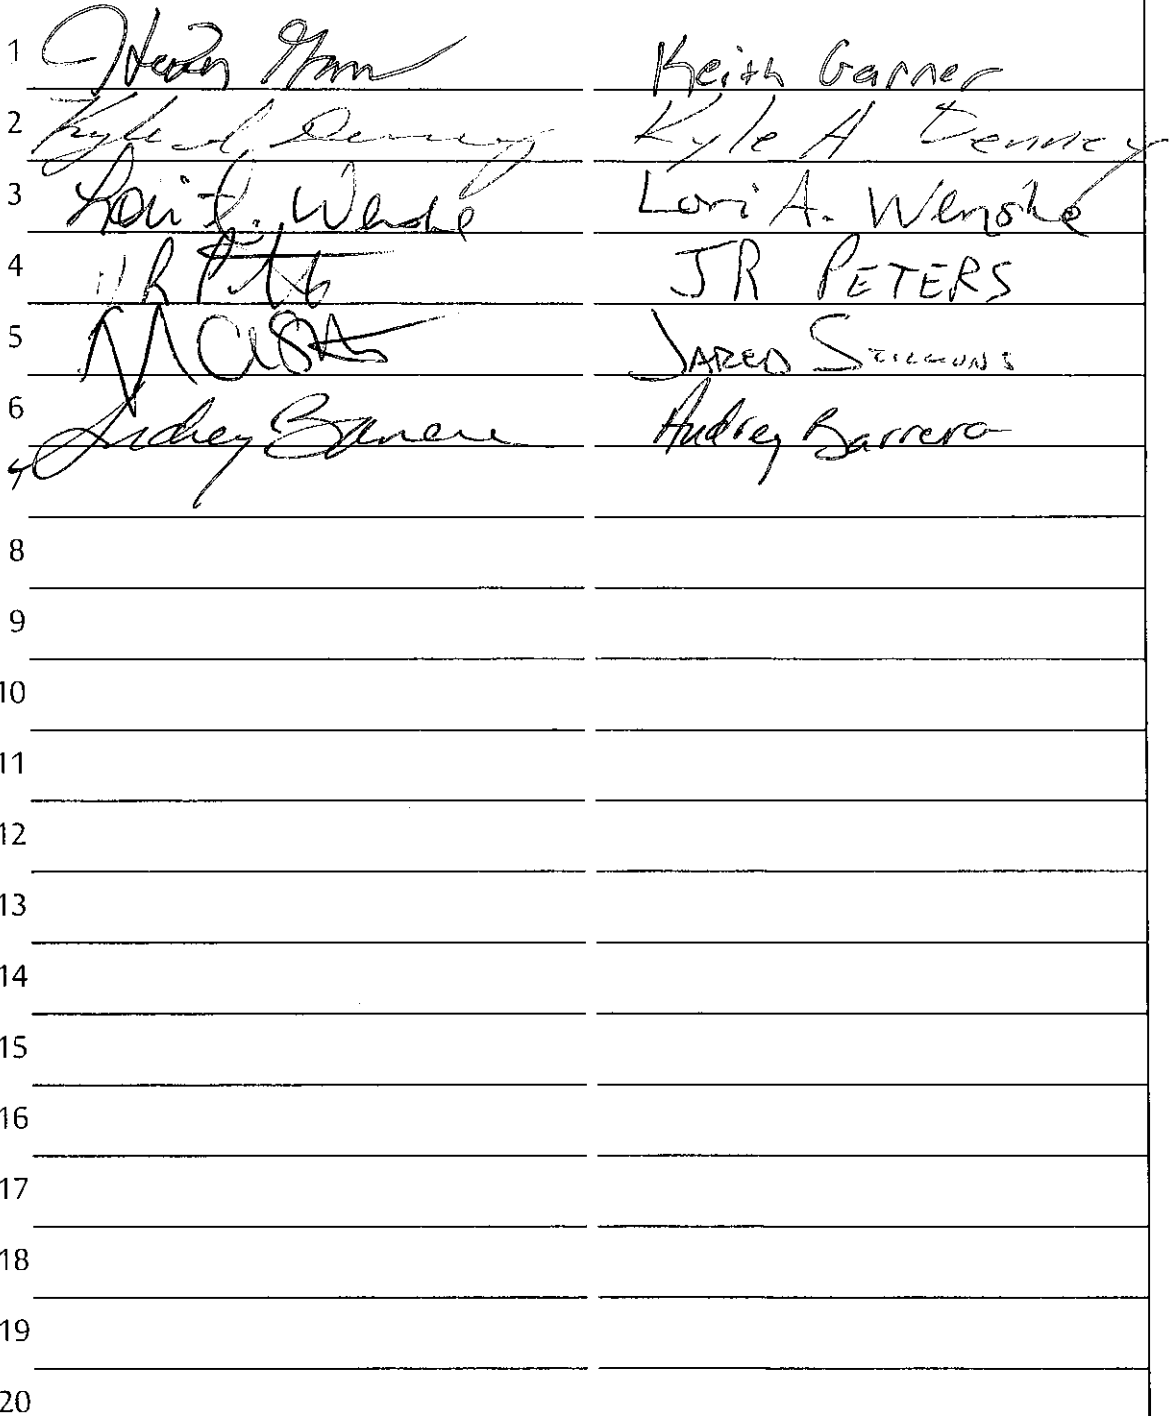 1 Keith Garner
2 Kyle A. Denney Kyle A Denney
3 Lori A. Wenske Lori A. Wenske
4 JR Peters JR PETERS
5 JARED
6 Audrey Barrera Audrey Barrera
7
8
9
10
11
12
13
14
15
16
17
18
19
20